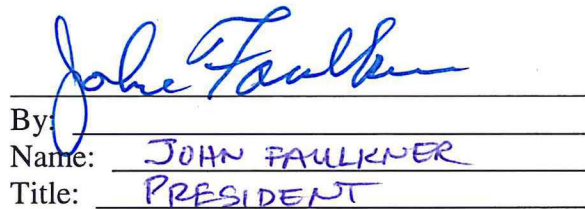 John Faulkner
By:
Name: JOHN FAULKNER
Title: PRESIDENT